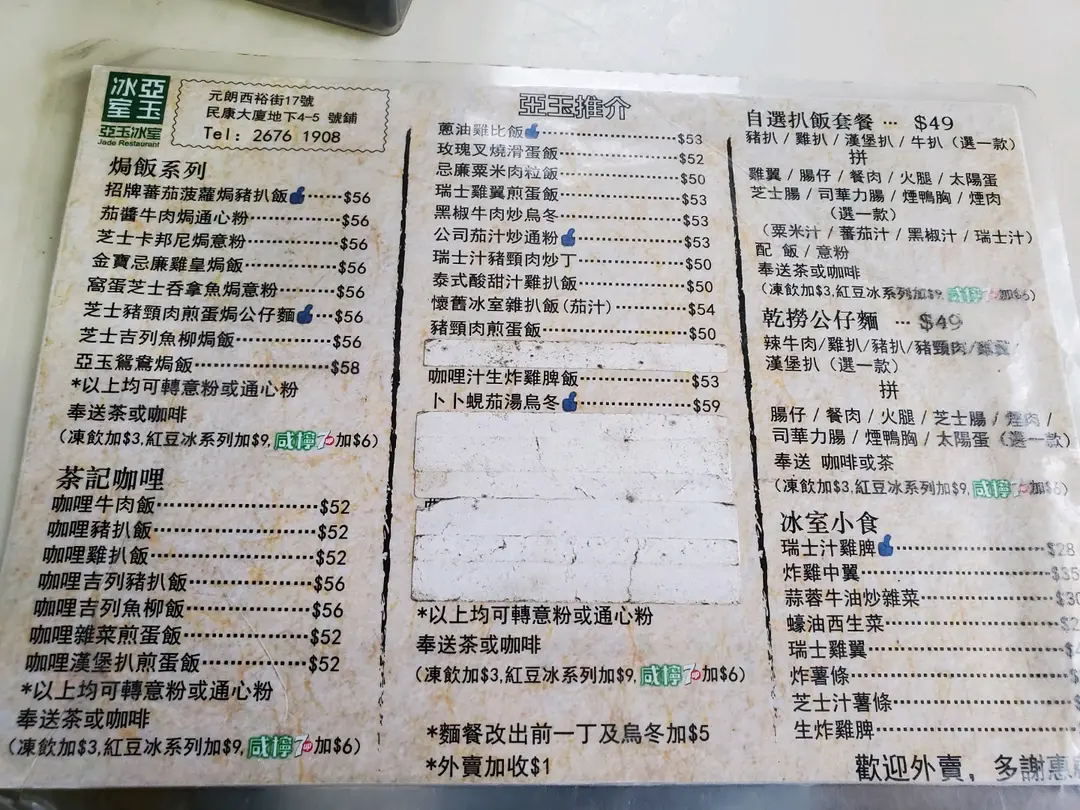 亞玉
冰室
亞玉冰室
Jade Restaurant
元朗西裕街17號
民康大廈地下4-5 號鋪
Tel: 2676 1908
焗飯系列
招牌蕃茄菠蘿焗豬扒飯……$56
茄醬牛肉焗通心粉……$56
芝士卡邦尼焗意粉……$56
金寶忌廉雞皇焗飯……$56
窩蛋芝士吞拿魚焗意粉……$56
芝士豬頸肉煎蛋焗公仔麵…$56
芝士吉列魚柳焗飯……$56
亞玉鴛鴦焗飯……$58
*以上均可轉意粉或通心粉
奉送茶或咖啡
(凍飲加$3,紅豆冰系列加$9,咸檸7加$6)
茶記咖哩
咖哩牛肉飯……$52
咖哩豬扒飯……$52
咖哩雞扒飯……$52
咖哩吉列豬扒飯……$56
咖哩吉列魚柳飯……$56
咖哩雜菜煎蛋飯……$52
咖哩漢堡扒煎蛋飯……$52
*以上均可轉意粉或通心粉
奉送茶或咖啡
(凍飲加$3,紅豆冰系列加$9,咸檸7加$6)
亞玉推介
蔥油雞比飯……$53
玫瑰叉燒滑蛋飯……$52
忌廉粟米肉粒飯……$50
瑞士雞翼煎蛋飯……$53
黑椒牛肉炒烏冬……$53
公司茄汁炒通粉……$53
瑞士汁豬頸肉炒丁……$50
泰式酸甜汁雞扒飯……$50
懷舊冰室雜扒飯(茄汁)……$54
豬頸肉煎蛋飯……$50
咖哩汁生炸雞脾飯……$53
卜卜蜆茄湯烏冬……$59
*以上均可轉意粉或通心粉
奉送茶或咖啡
(凍飲加$3,紅豆冰系列加$9,咸檸7加$6)
*麵餐改出前一丁及烏冬加$5
*外賣加收$1
自選扒飯套餐 … $49
豬扒 / 雞扒 / 漢堡扒 / 牛扒 (選一款)
拼
雞翼 / 腸仔 / 餐肉 / 火腿 / 太陽蛋
芝士腸 / 司華力腸 / 煙鴨胸 / 煙肉
(選一款)
(粟米汁 / 蕃茄汁 / 黑椒汁 / 瑞士汁)
配 飯 / 意粉
奉送茶或咖啡
(凍飲加$3,紅豆冰系列加$9,咸檸7加$6)
乾撈公仔麵 … $49
辣牛肉/雞扒/豬扒/豬頸肉/雞翼/
漢堡扒 (選一款)
拼
腸仔 / 餐肉 / 火腿 / 芝士腸 / 煙肉 /
司華力腸 / 煙鴨胸 / 太陽蛋 (選一款)
奉送 咖啡或茶
(凍飲加$3,紅豆冰系列加$9,咸檸7加$6)
冰室小食
瑞士汁雞脾……$28
炸雞中翼……$35
蒜蓉牛油炒雜菜……$30
蠔油西生菜……
瑞士雞翼……
炸薯條……
芝士汁薯條……
生炸雞脾……
歡迎外賣，多謝惠